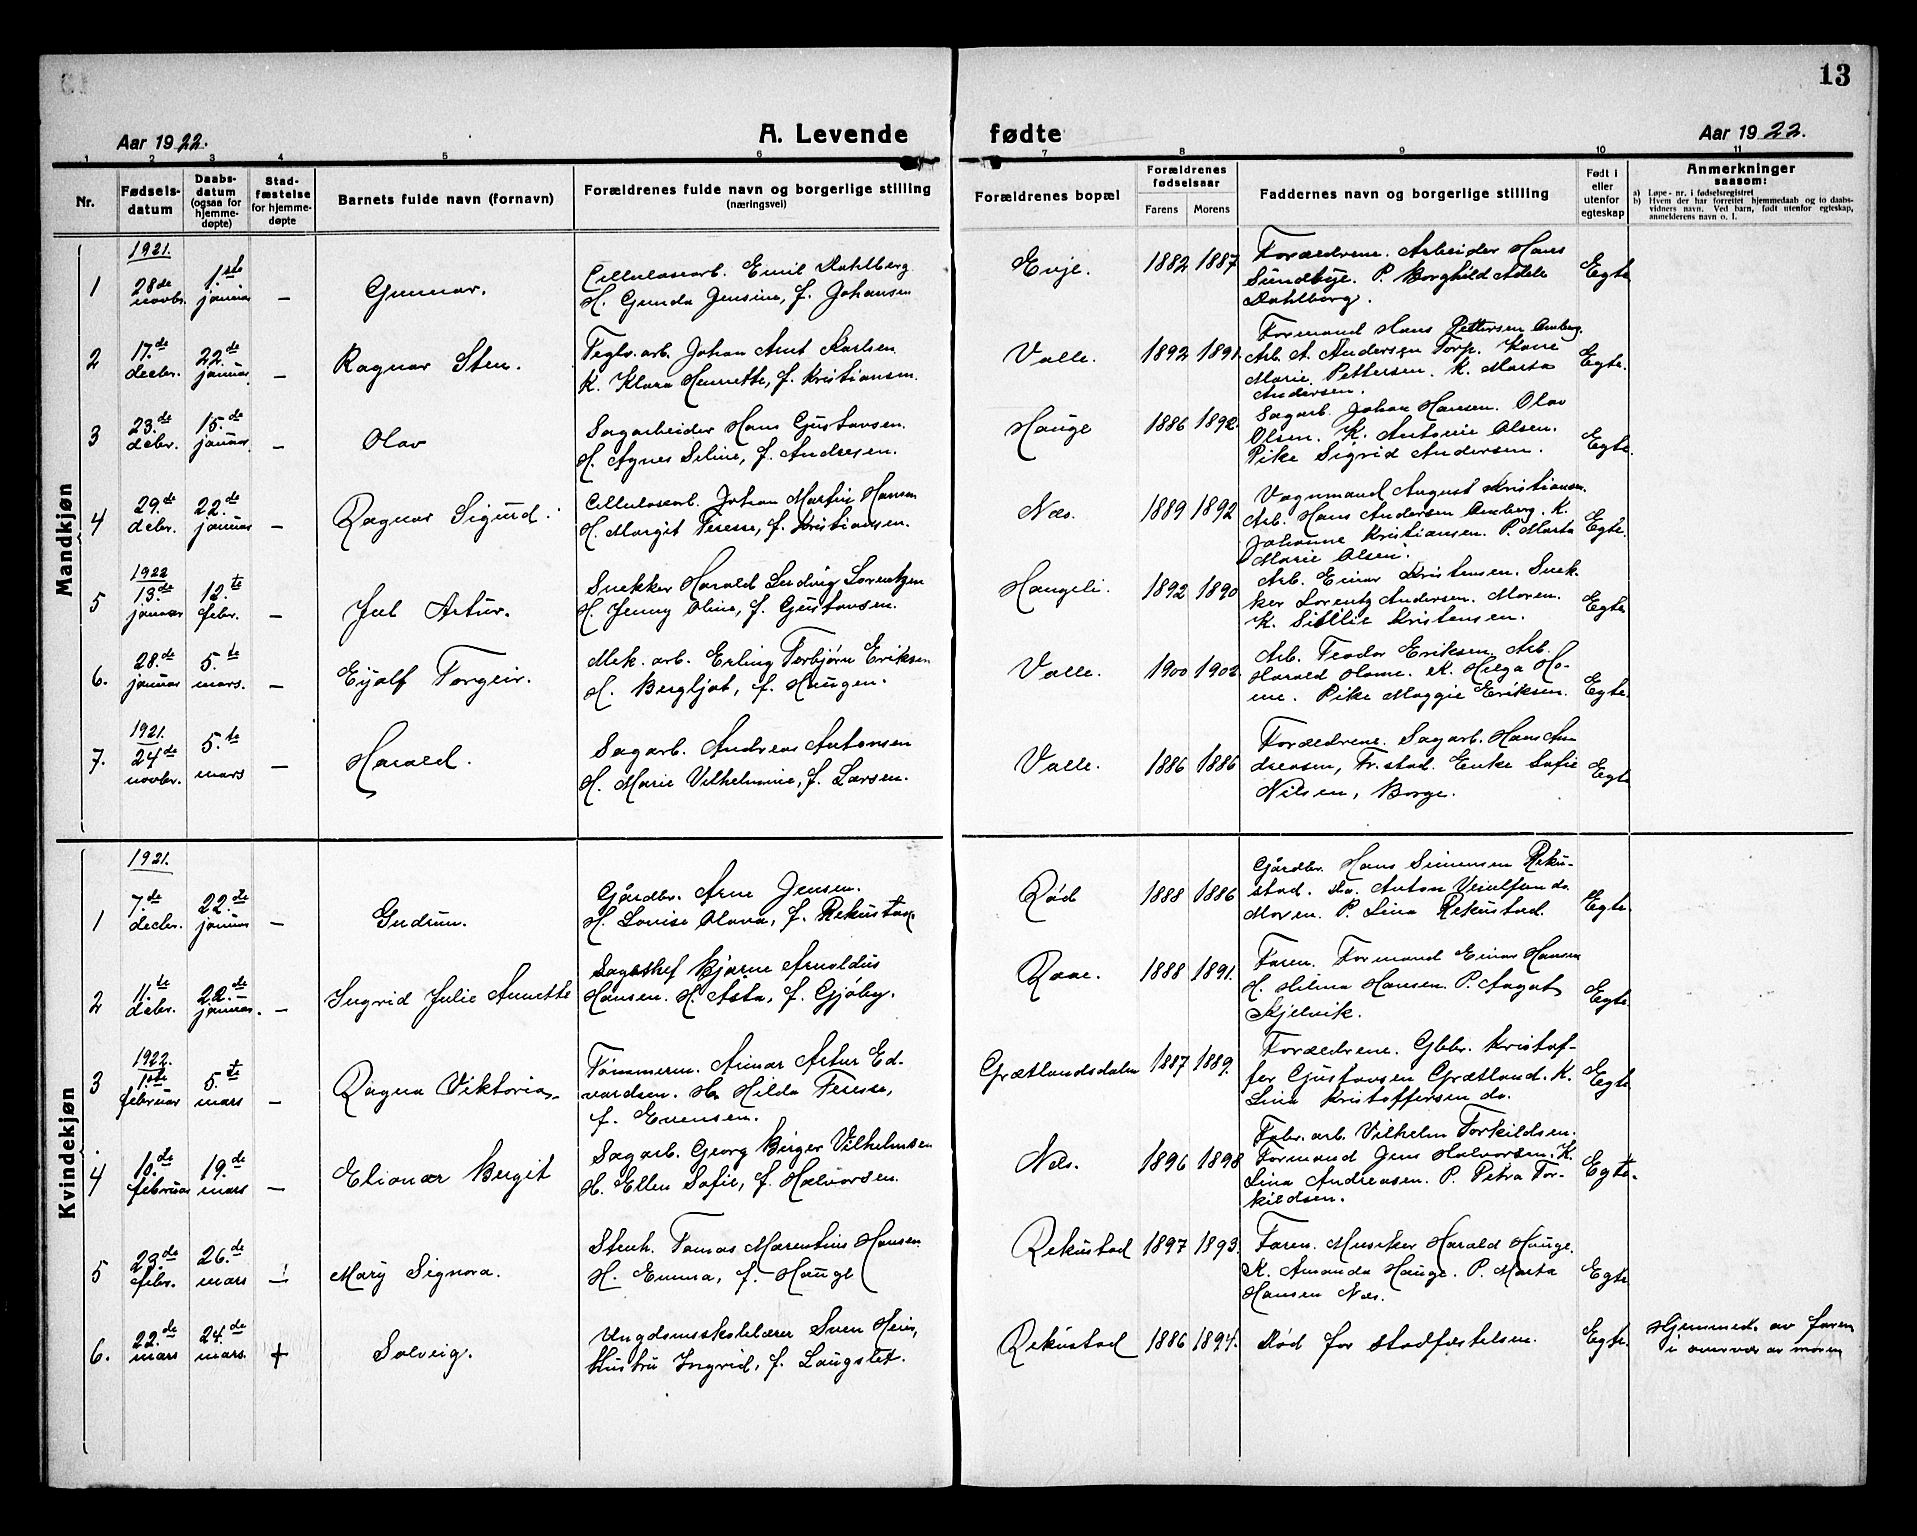 13
Aar 1922.
A. Levende
fødte
Aar 1922.
1 2 3 4 5 6 7 8 9 10 11
Nr.
Fødsels-
datum
Daabs-
datum
(ogsaa for
hjemme-
døpte)
Stad-
fæstelse
for hjemme-
døpte
Barnets fulde navn (fornavn)
Forældrenes fulde navn og borgerlige stilling
(næringsvei)
Forældrenes bopæl
Forældrenes
fødselsaar
Farens
Morens
Faddernes navn og borgerlige stilling
Født i
eller
utenfor
egteskap
Anmerkninger
saasom:
a) Løpe-nr. i fødselsregistret
b) Hvem der har forrettet hjemmedaab og to daabs-
vidners navn. Ved barn, født utenfor egteskap,
anmelderens navn o. l.
Mandkjøn
1921.
1 28de novbr. 1.ste januar – Gunnar.
Cellulosearb. Emil Dahlberg
H. Gunda Jensine, f. Johansen
Evje. 1882 1887
Forældrene. Arbeider Hans
Sundbye. P. Borghild Adele
Dahlberg.
Egte
2 17.de decbr. 22.de januar – Ragnar Sten.
Teglv. arb. Johan Arnt Karlsen
K. Klara Henrette, f. Kristiansen.
Valle. 1892 1891.
Formand Hans Pettersen Amberg.
Arb. A. Andersen Torp. Kone
Marie Pettersen. K. Marta
Andersen.
Egte.
3 23.de debr. 15.de januar – Olav
Sagarbeider Hans Gustavsen.
H. Agnes Seline, f. Andresen.
Hauge 1886 1892.
Sagarb. Johan Hansen. Olav
Olsen. K. Antonie Olsen.
Pike Sigrid Andersen.
Egte.
4 29.de debr. 22.de januar – Ragnar Sigurd.
Cellulosearb. Johan Martin Hansen
H. Margit Terese, f. Kristiansen.
Næs. 1889 1892
Vognmand August Kristiansen.
Arb. Hans Andersen Amberg. K.
Johanne Kristiansen. P. Marta
Marie Olsen.
Egte.
1922
5 13.de januar 12.te febr. – Juel Artur.
Snekker Harald Ludvig Lorentzen
H. Jenny Oline, f. Gustavsen.
Haugeli. 1892 1890
Arb. Einar Kristensen. Snek-
ker Lorentz Andersen. Moren.
K. Kristensen.
Egte
6. 28.de januar 5.te mars. – Eyolf Torgeir.
Mek. arb. Erling Torbjørn Eriksen
H. Bergljot, f. Haugen.
Valle. 1900 1902.
Arb. Teodor Eriksen. Arb.
Harald Holme. K. Helga Ho-
me. Pike Maggie Eriksen.
Egte.
1921.
7. 24de novbr. 5.te mars – Harald.
Sagarb. Andreas Antonsen
H. Marie Vilhelmine, f. Larsen.
Valle. 1886 1886
Forældrene. Sagarb. Hans An
dreasen, Fr.stad. Enke Sofie
Nilsen, Borge.
Egte
Kvindekjøn
1921.
1 7.de decbr. 22.de januar – Gudrun.
Gårdbr. Arne Jensen.
H. Lovise Olava, f. Rekustad
Rød 1888 1886
Gårdbr. Hans Simensen Reku-
stad. Do. Anton do.
Moren. P. Lina Rekustad.
Egte.
2 11.te debr. 22.de januar. – Ingrid Julie Annette
Sagbshef Bjarne Arnoldus
Hansen. H. Asta, f. Gjøby.
Raae. 1888 1891.
Faren. Formand Einar Hansen
H. Hilma Hansen. P. Aagot
Kjelvik.
Egte
1922.
3 1ste februar 5.te mars – Ragna Viktoria.
Tømmerm. Arinar Artur Ed-
vardsen. H. Hilda Terese,
f. Evensen.
Grætlandsdalen 1887 1889.
Forældrene. Gbbr. Kristof-
fer Gustavsen Grætland. K.
Lina Kristoffersen do.
Egte
4 10.de februar 19.de mars – Elionær Bergit
Sagarb. Georg Birger Vilhelmsen
H. Ellen Sofie, f. Halvorsen.
Næs. 1896 1898
Fabr. arb. Vilhelm Torkildsen.
Formand Jens Halvorsen. K.
Lina Andreasen. P. Petra Tor-
kildsen.
Egte.
5 23.de febr. 26.de mars – Mary Signora.
Stenh. Tomas Marentius Hansen
H. Emma, f. Hauge
Rekustad 1897 1893.
Faren. Musiker Harald Hauge.
K. Amanda Hauge. P. Marta
Hansen Næs.
Egte
6. 22.de mars 24.de mars. + Solveig.
Ungdomsskolelærer Sven Heim,
Hustru Ingrid, f. Laugslet.
Rekustad 1886 1894.
Død før stadfæstelsen.
Egte.
Hjemmed. av faren
i overvær av moren